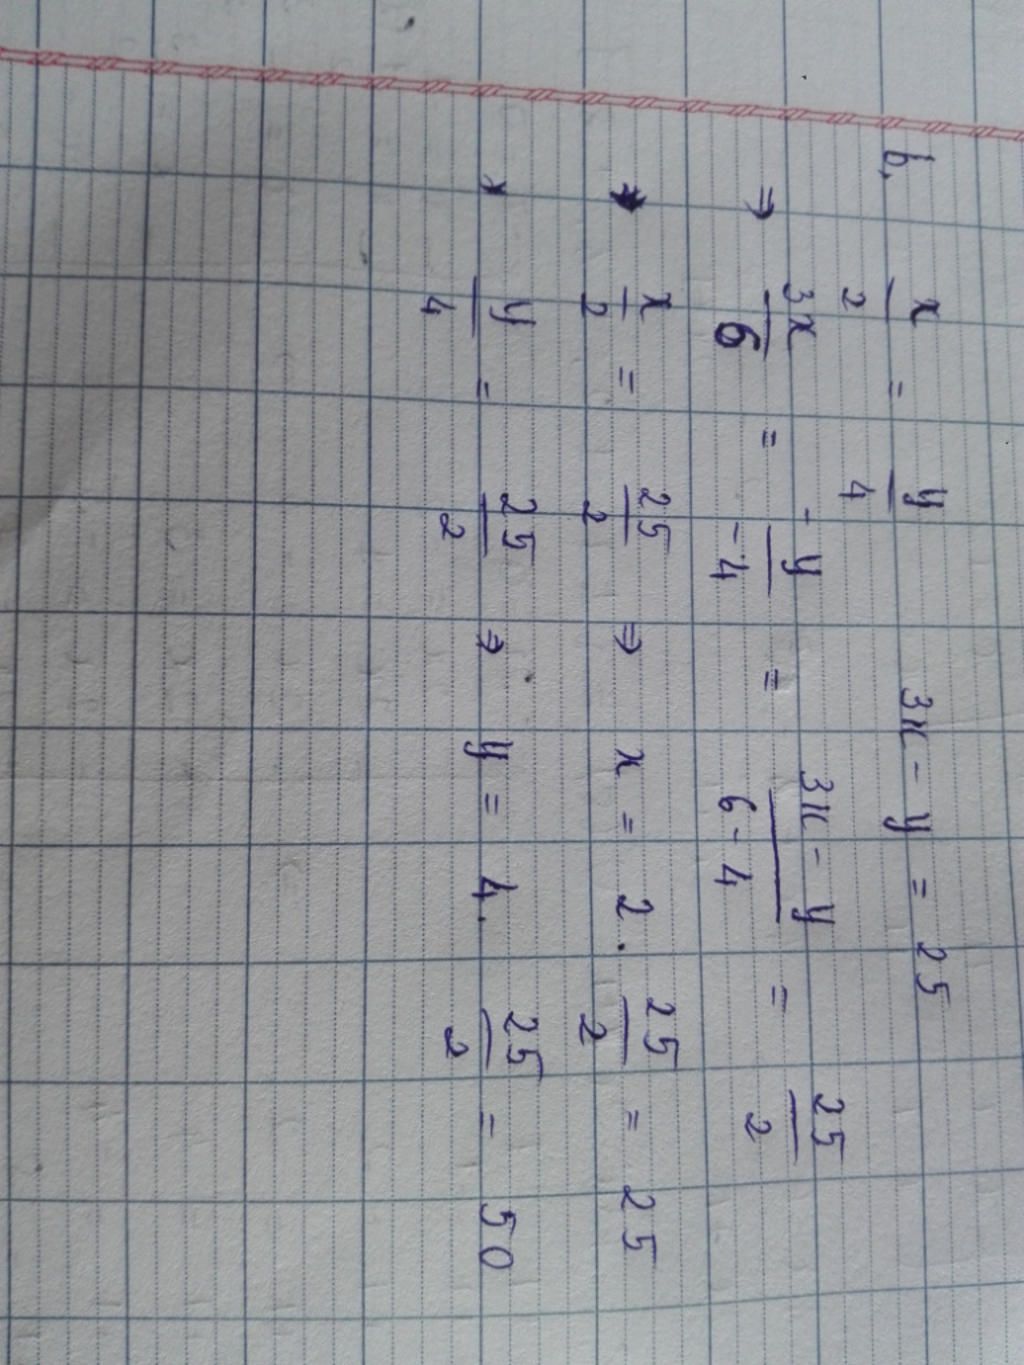 b, x/2 = y/4 3x - y = 25
⇒ 3x/6 = -y/-4 = 3x - y/6 - 4 = 25/2
* x/2 = 25/2 ⇒ x = 2. 25/2 = 25
* y/4 = 25/2 ⇒ y = 4. 25/2 = 50